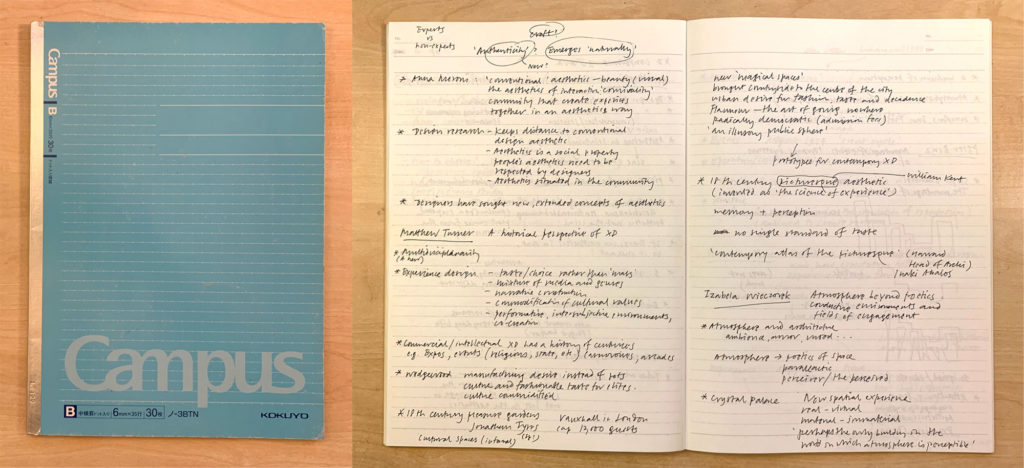 Campus
B
30枚
Campus
B 中横罫 ドット入り 6mm×35行 30枚 ノ-3BTN
KOKUYO
Experts
vs
non-experts
Craft?
'Authenticity'? Emerges 'naturally'
new?
* Anna Meroni : 'conventional' aesthetics – beauty (visual)
the aesthetics of interaction 'conviviality'
community that create experiences
together in an aesthetics way
* Design research – keeps distance to conventional
design aesthetic
– Aesthetics is a social property
people's aesthetics need to be
respected by designers
– Aesthetics situated in the community
* Designers have sought new, extended concepts of aesthetics
Matthew Turner A historical perspective of XD
* Multidisciplinarity
(A new)
* Experience design – taste/choice rather than 'mass'
– mixture of media and genres
– narrative construction
– commodification of cultural values
– performative, inter-subjective, instruments,
co-creation
* Commercial/intellectual XD has a history of centuries
e.g. Expos, events (religious, state, etc.) carnivores, arcades
* Wedgewood manufacturing desire instead of pots
culture and fashionable taste for elites.
culture commodified
* 18th century pleasure gardens Vauxhall in London
Jonathan Tyers cap 12,000 guests
cultural spaces
new 'magical spaces'
brought countryside to the centre of the city
urban desire for fashion, taste and decadence
Flanerie – the art of going nowhere
radically democratic (admission fee)
'an illusory public sphere'
prototypes for contemporary XD
William Kent
* 18th century picturesque aesthetic
(invented as 'the science of experience')
memory + perception
no single standard of taste
'contemporary atlas of the picturesque' (Harvard
Head of Archi)
Inaki Abalos
Izabela Wieczorek Atmosphere beyond poetics.
conducting environments and
fields of engagement
* Atmosphere and architecture
ambience, mood...
Atmosphere → poetics of space
perceiver/the perceived
* Crystal palace New spatial experience
real – virtual
material – immaterial
'perhaps the only building in the
world in which atmosphere is perceptible'